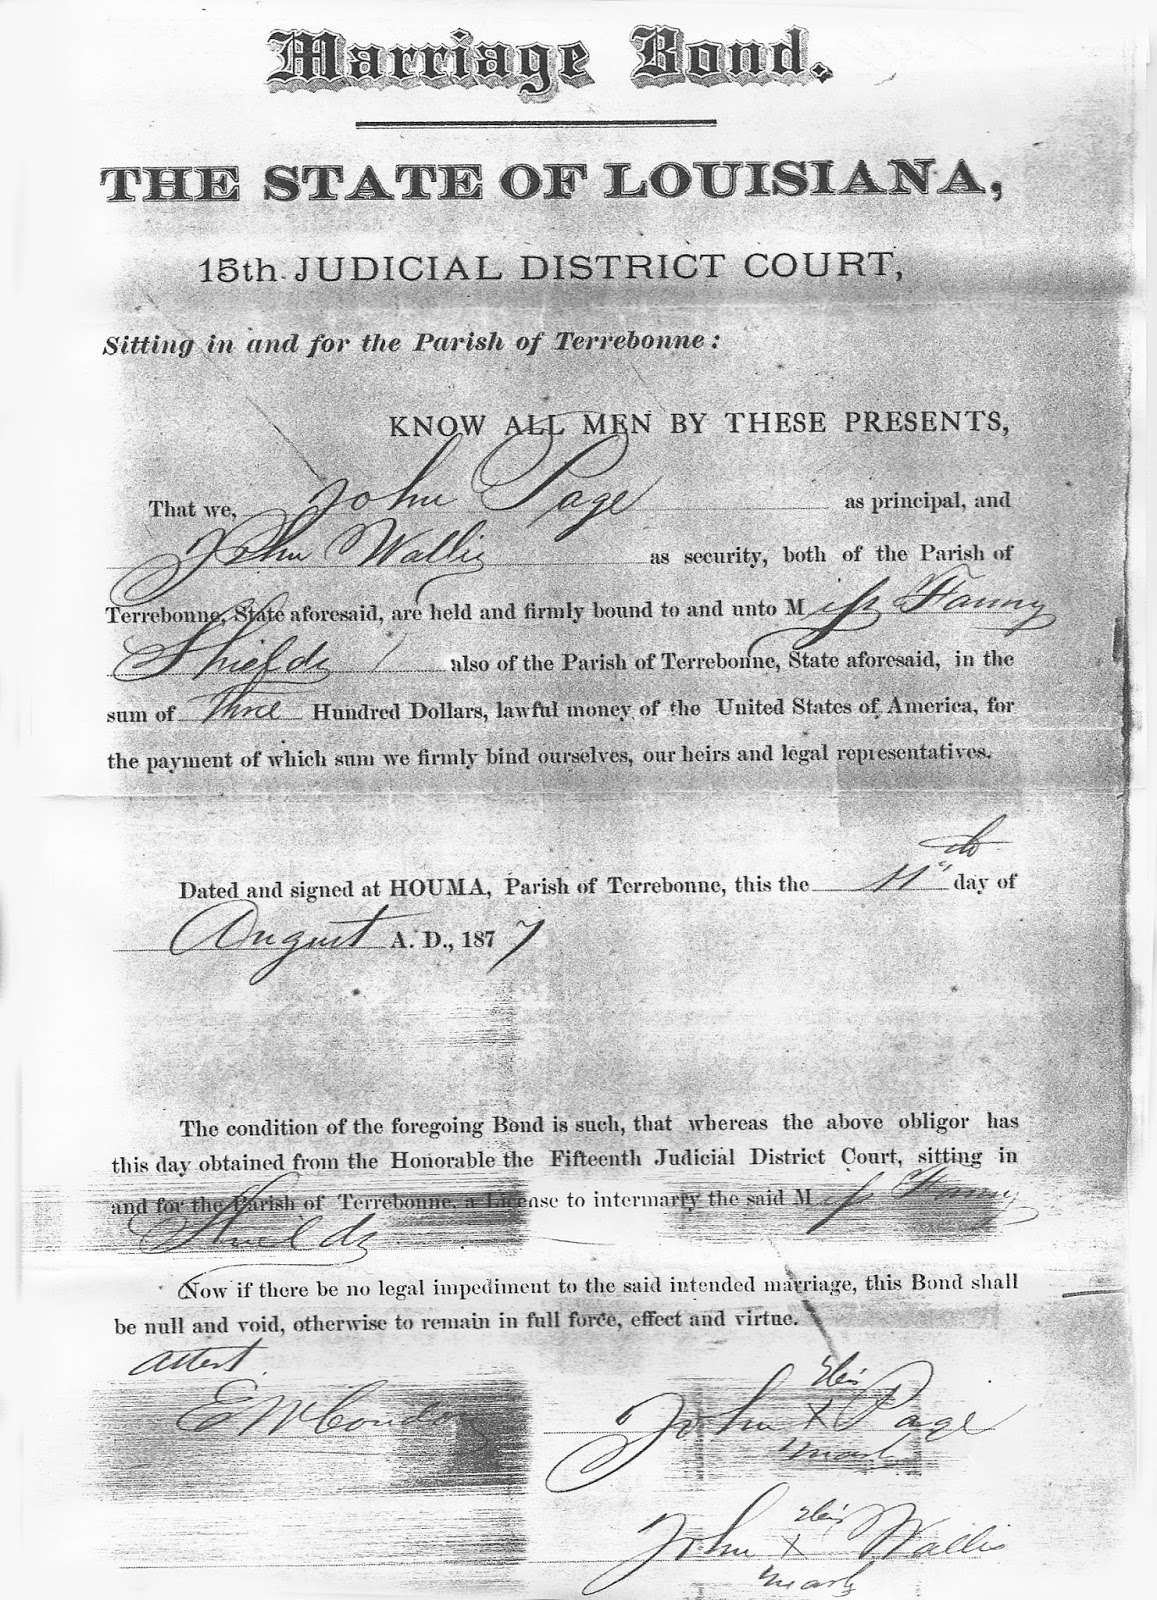 Marriage Bond.
THE STATE OF LOUISIANA,
15th JUDICIAL DISTRICT COURT,
Sitting in and for the Parish of Terrebonne:
KNOW ALL MEN BY THESE PRESENTS,
That we, John Page as principal, and
John Wallis as security, both of the Parish of
Terrebonne, State aforesaid, are held and firmly bound to and unto Miss Fanny
Shields also of the Parish of Terrebonne, State aforesaid, in the
sum of Three Hundred Dollars, lawful money of the United States of America, for
the payment of which sum we firmly bind ourselves, our heirs and legal representatives.
Dated and signed at HOUMA, Parish of Terrebonne, this the 11th day of
August A. D., 1877
The condition of the foregoing Bond is such, that whereas the above obligor has
this day obtained from the Honorable the Fifteenth Judicial District Court, sitting in
and for the Parish of Terrebonne, a License to intermarry the said Miss Fanny
Shields
Now if there be no legal impediment to the said intended marriage, this Bond shall
be null and void, otherwise to remain in full force, effect and virtue.
Attest
his
E McCondon John X Page
mark
his
John X Wallis
mark